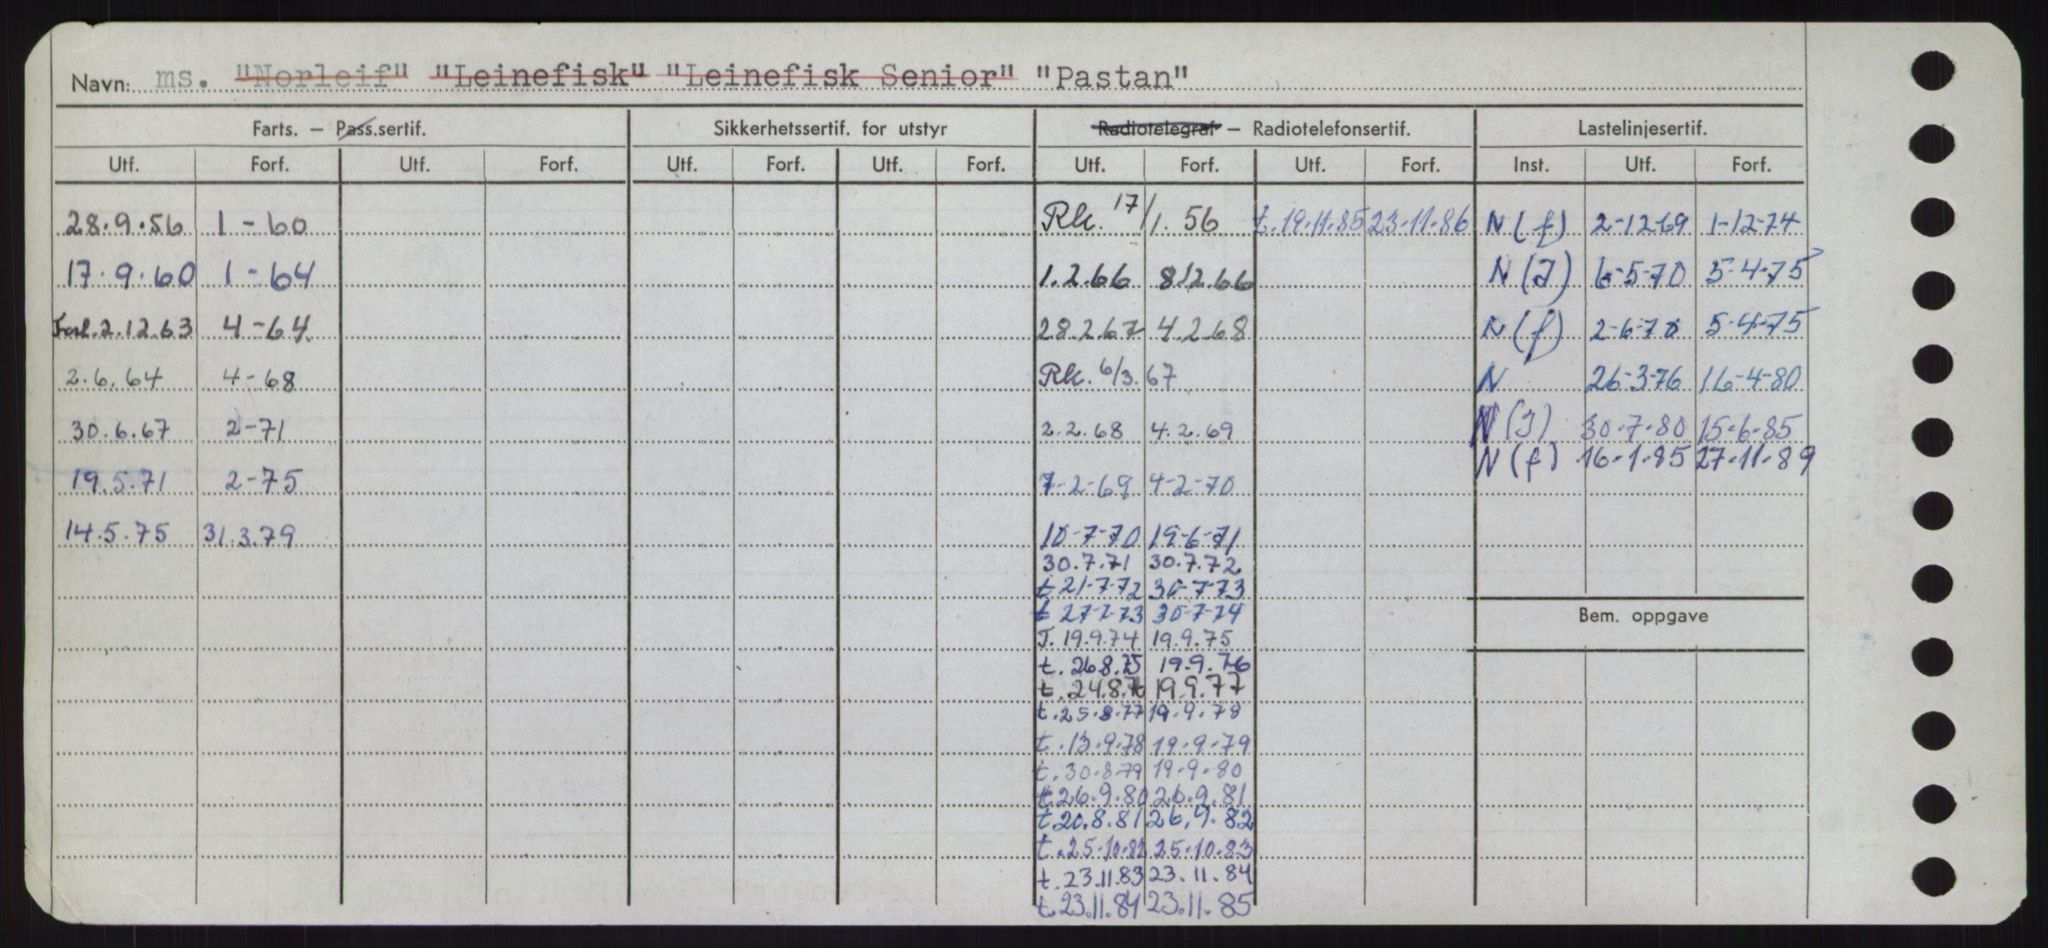 Navn: ms. "Norleif" "Leinefisk" "Leinefisk Senior" "Pastan"
Farts. — Pass.sertif. Sikkerhetssertif. for utstyr Radiotelegraf — Radiotelefonsertif. Lastelinjesertif.
Utf. Forf. Utf. Forf. Utf. Forf. Utf. Forf. Utf. Forf. Utf. Forf. Inst. Utf. Forf.
28.9.56 1-60 Rk. 17/1.56 t.19.11.85 23-11-86 N(f) 2-12-69 1-12-74
17.9.60 1-64 1.2.66 8/2.66 N(J) 6-5-70 5-4-75
Forl.2.12.63 4-64 28.2.67 4.2.68 N(f) 2-6-70 5-4-75
2.6.64 4-68 Rk. 6/3.67 N 26-3-76 16-4-80
30.6.67 2-71 2.2.68 4.2.69 N(J) 30-7-80 15-6-85
N(f) 16-1-85 27-11-89
19.5.71 2-75 7-2-69 4-2-70
14.5.75 31.3.79 10-7-70 19-6-71
30.7.71 30.7.72
t 21-7-72 30-7-73
t 27-7-73 30-7-74
Bem. oppgave
T. 19.9.74 19.9.75
t. 26.8.75 19.9.76
t. 24.8.76 19.9.77
t.25.8.77 19.9.78
t.13.9.78 19-9-79
t.30-8-79 19-9-80
t.26.9.80 26.9.81
t.20.8.81 26.9.82
t.25-10.82 25-10.83
t.23.11.83 23.11.84
t.23.11.84 23.11.85